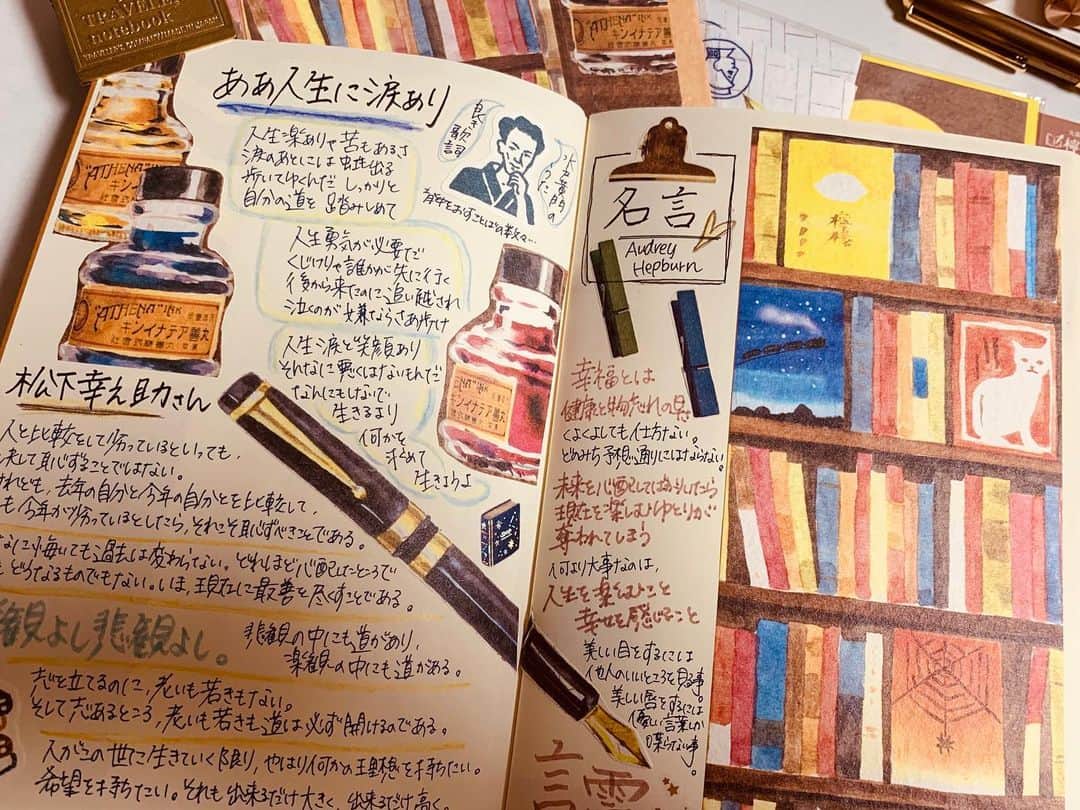 TRAVELER'S
notebook
ああ人生に涙あり
人生楽ありゃ苦もあるさ
涙のあとには虹も出る
歩いてゆくんだ しっかりと
自分の道を踏みしめて
良き
歌詞
水戸黄門の
うた
人生勇気が必要だ
くじけりゃ誰かが先に行く
後から来たのに追い越され
泣くのが嫌ならさあ歩け
人生涙と笑顔あり
そんなに悪くはないもんだ
なんにもしないで
生きるより
何かを
求めて
生きようよ
"ATHENA"INK
キンイナテア善丸
"ATHENA"INK
キンイナテア善丸
社會式株善丸
キンイナテア善丸
松下幸之助さん
人と比較をして劣っているといっても、
決して恥ずることではない。
けれども、去年の自分と今年の自分とを比較して、
も今年が劣っているとしたら、それこそ恥ずべきことである。
なに悔いても過去は変わらない。どれほど心配したところで
もどうなるものでもない。いま、現在に最善を尽くすことである。
観よし悲観よし。
悲観の中にも道があり、
楽観の中にも道がある。
志を立てるのに、老いも若きもない。
そして志あるところ、老いも若きも道は必ず開けるのである。
人がこの世に生きていく限り、やはり何かの理想を持ちたい。
希望を持ちたい。それも出来るだけ大きく、出来るだけ高く。
名言
Audrey
Hepburn
幸福とは
健康と物忘れの
くよくよしても仕方ない。
どのみち予想通りにはならない。
未来を心配してばかりいたら
現在を楽しむゆとりが
奪われてしまう
何より大事なのは、
人生を楽しむこと
幸せを感じること
美しい目をするには
他人のいいところを見る事。
美しい唇をするには
優しい言葉しか
喋らない事。
言霊